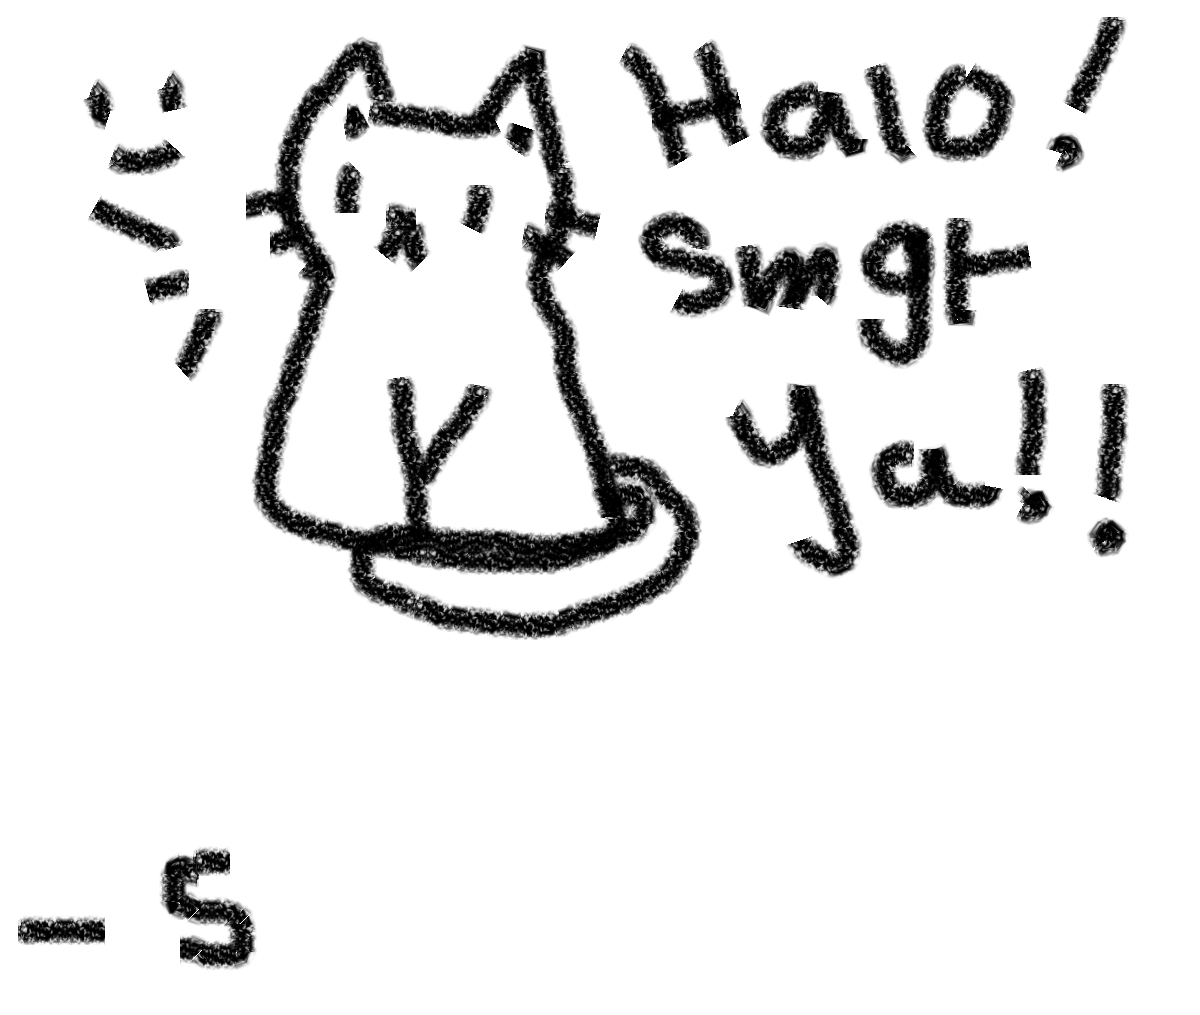 Halo!
Smgt
Ya!!
- S